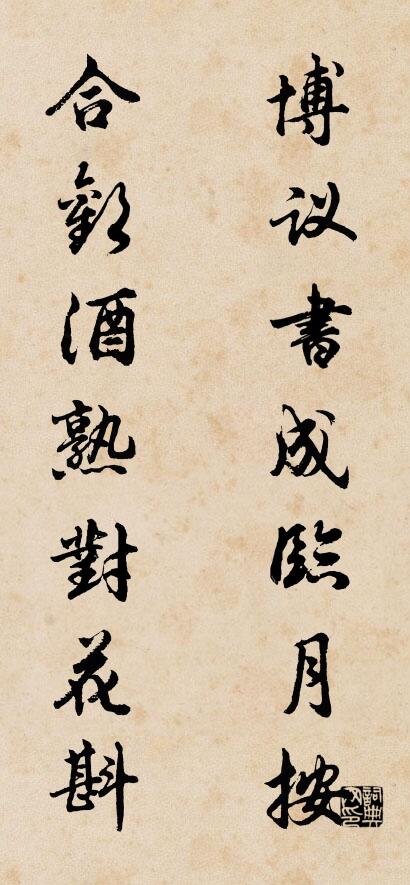 博议書成臨月按
合歡酒熟對花斟
詞典